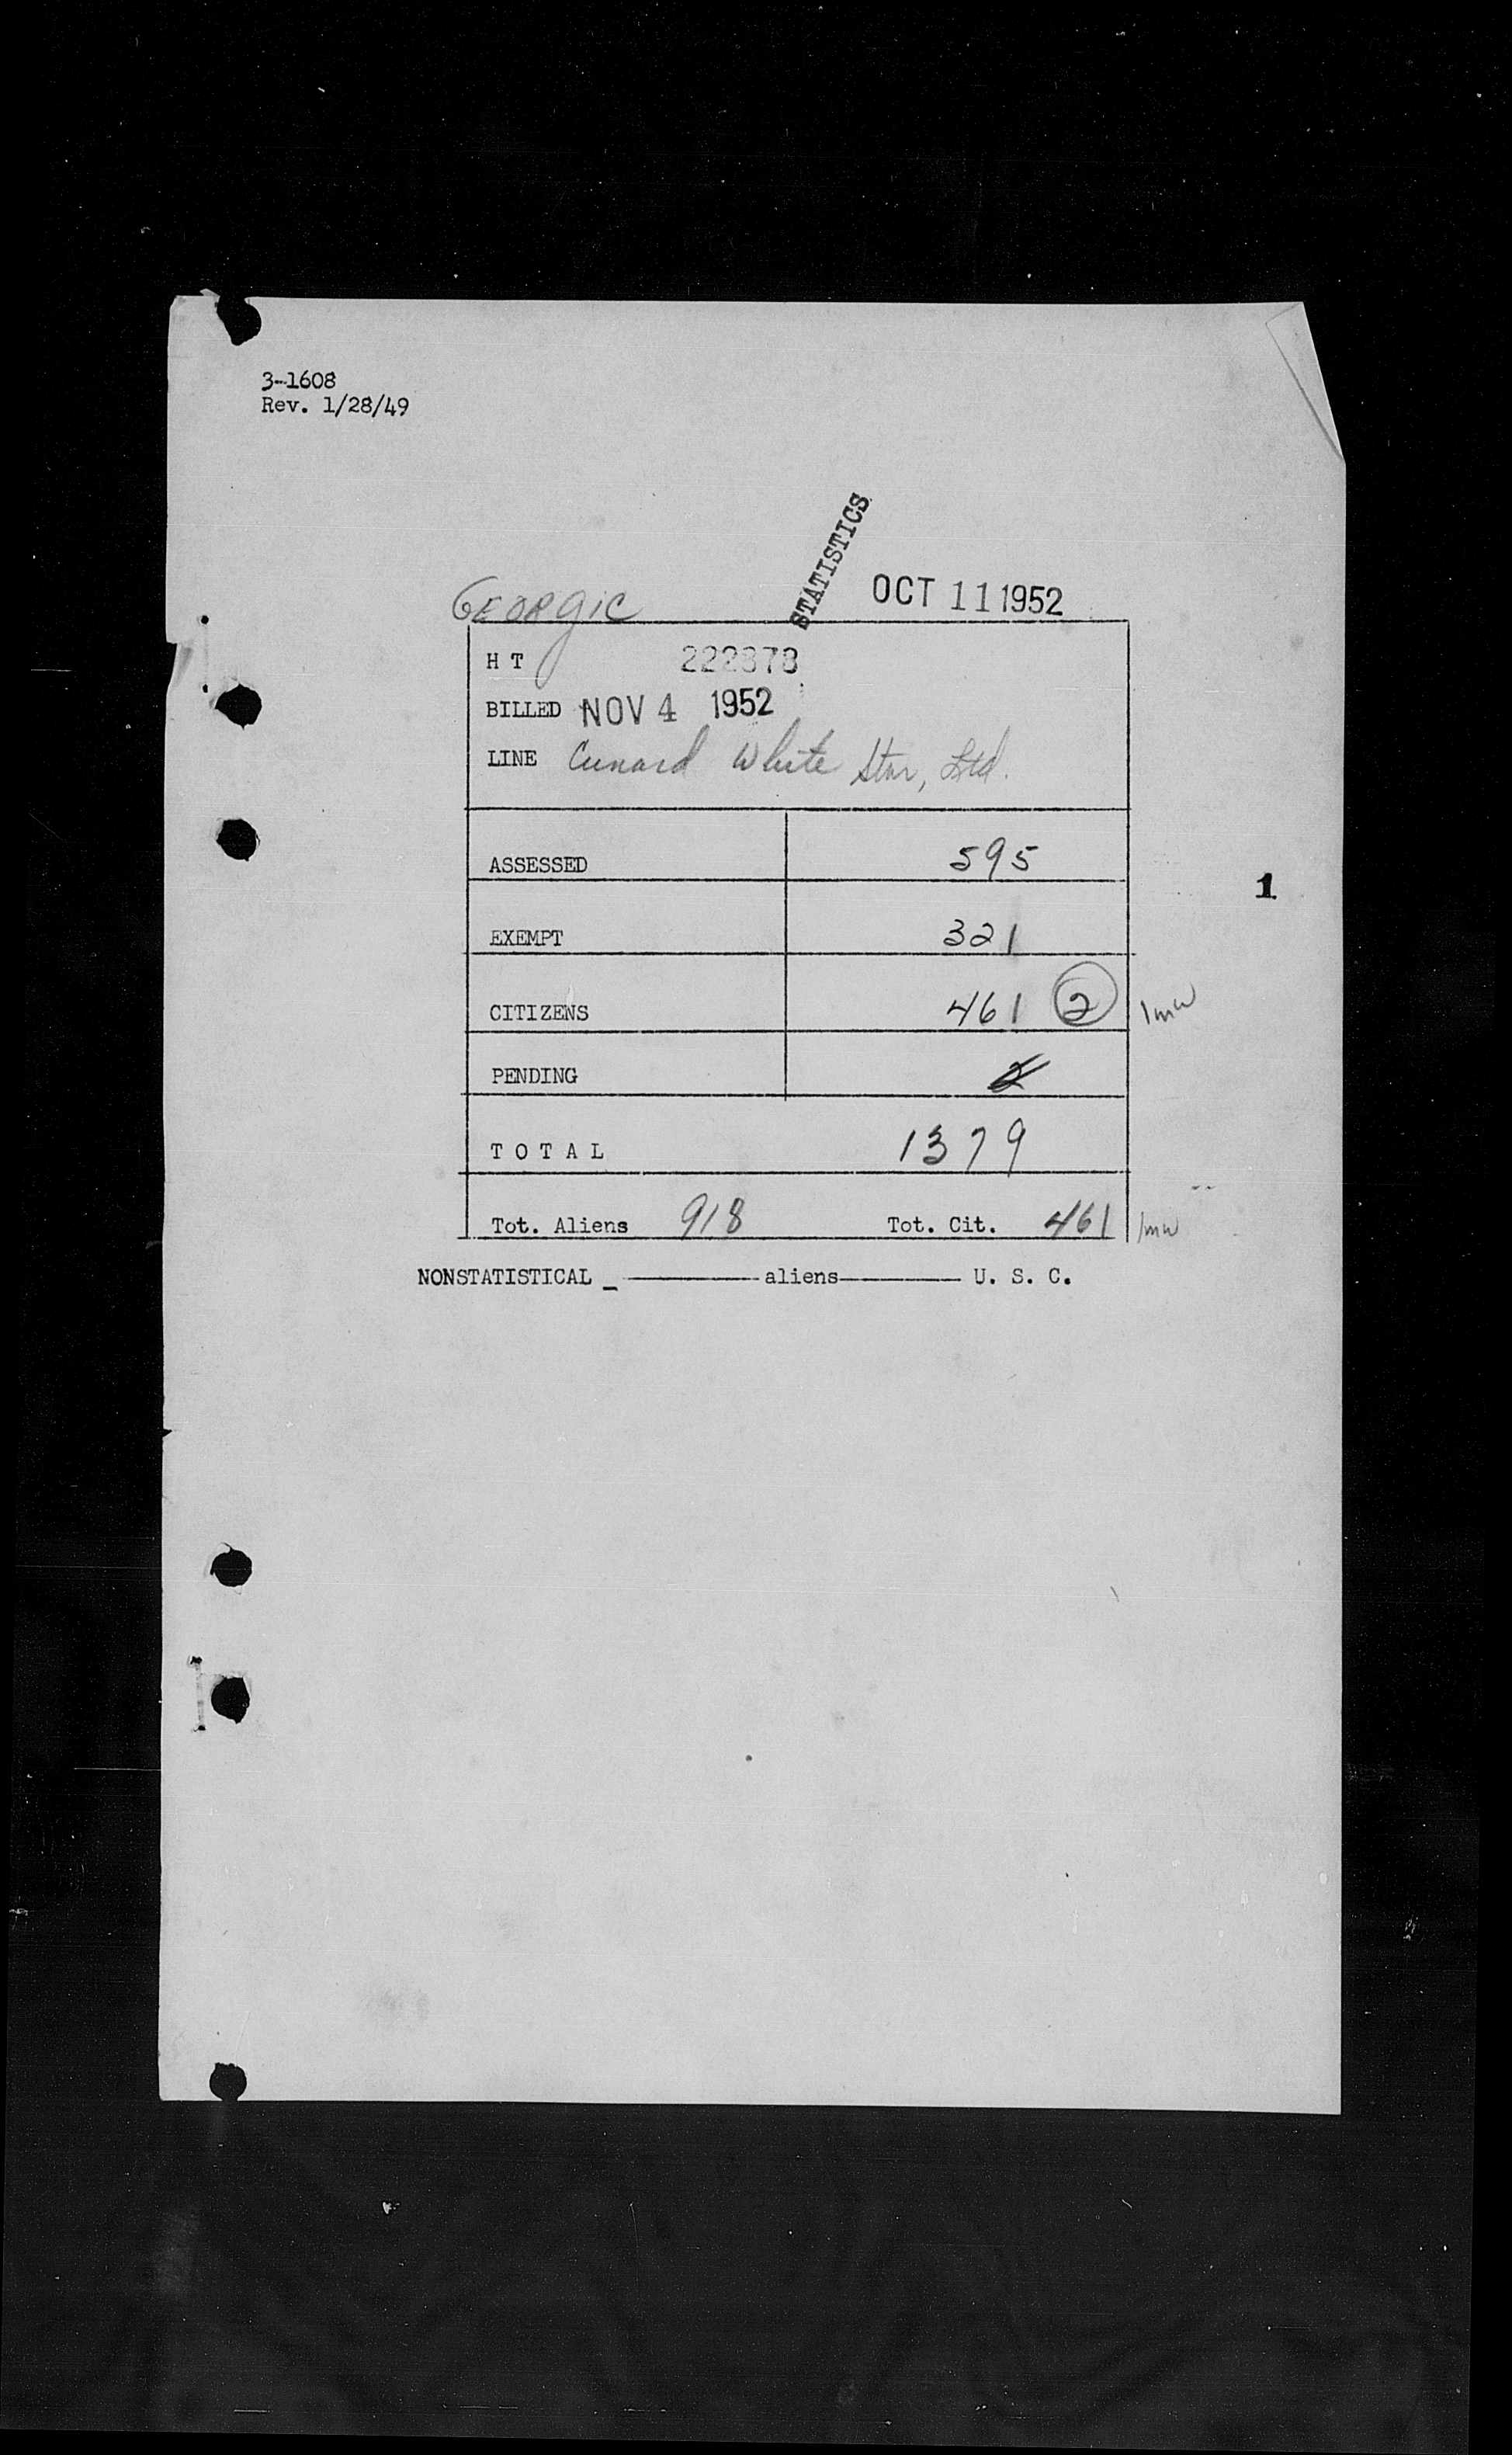 3-1608
Rev. 1/28/49
STATISTICS
GEORGIC OCT 11 1952
H T 222878
BILLED NOV 4 1952
LINE Cunard White Star, Ltd.
ASSESSED 595
1
EXEMPT 321
CITIZENS 461 2 1mw
PENDING 2
T O T A L 1379
Tot. Aliens 918 Tot. Cit. 461 1mw
NONSTATISTICAL _ ———— aliens ———— U. S. C.